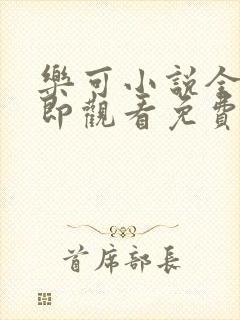 樂可小說全
即觀看免費
首席部長